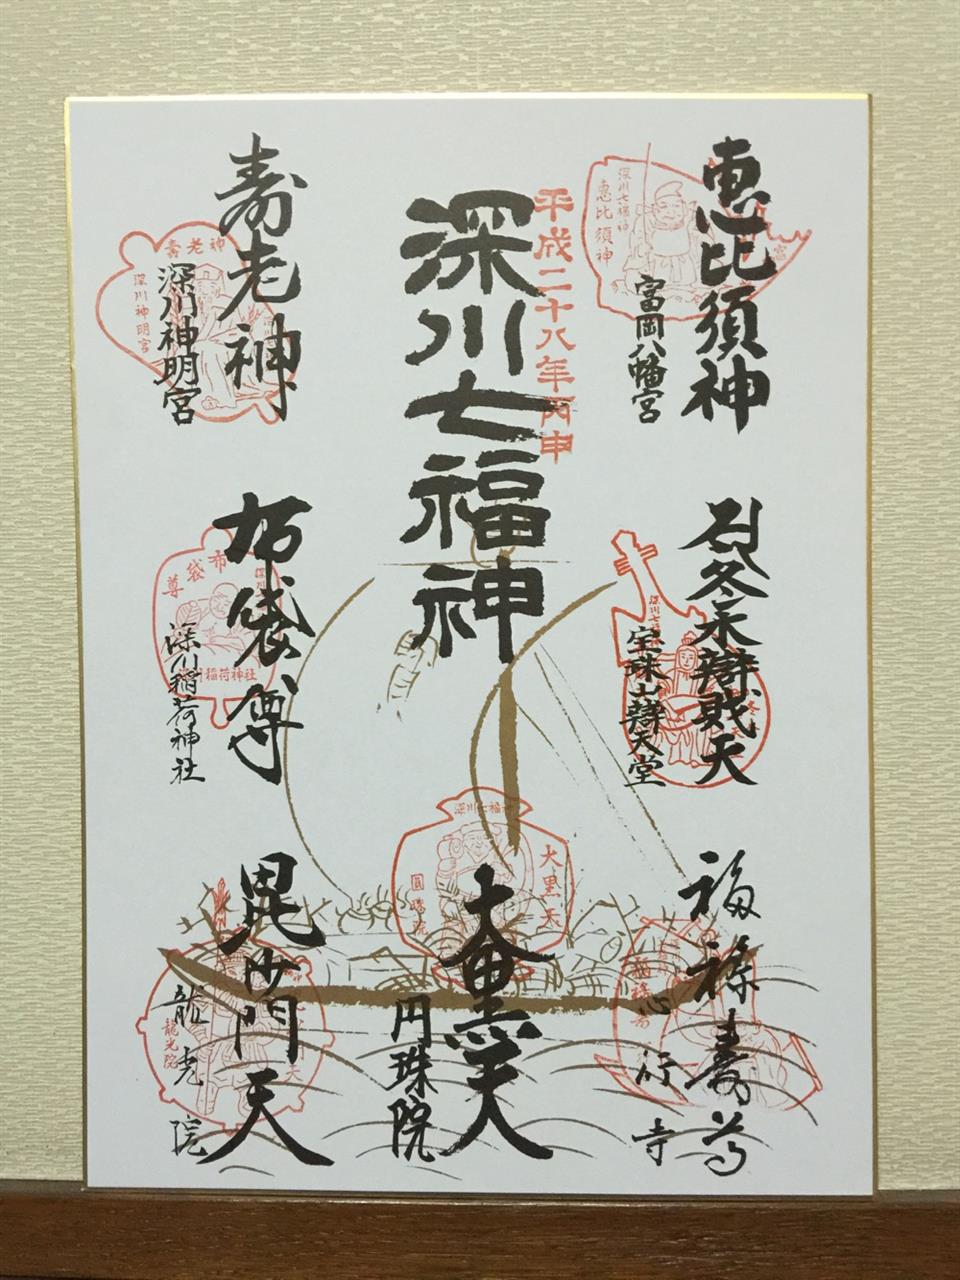 恵比須神
深川七福神
恵比須神
富岡八幡宮
冬木辯財天
宝珠山辯天堂
福禄寿尊
心行寺
平成二十八年丙申
深川七福神
深川七福
大黒天
大黒天
円珠院
寿老神
壽老神
深川神明宮
深川神明宮
布袋尊
布袋尊
深川稲荷神社
川稲荷神社
毘沙門天
龍光院
龍光院